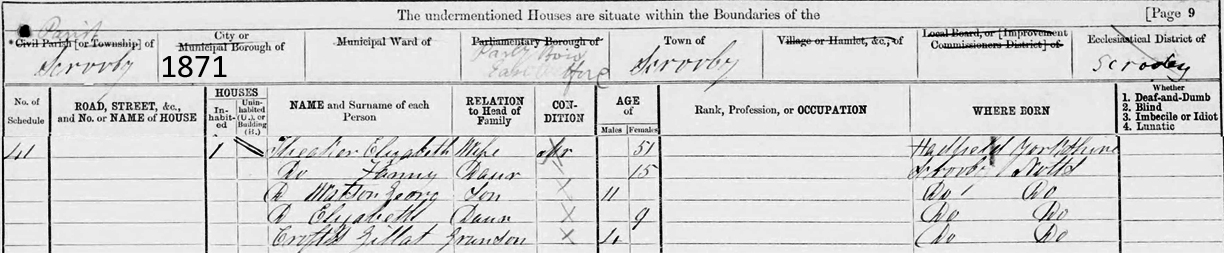 The undermentioned Houses are situate within the Boundaries of the [Page 9
Parish
Civil Parish [or Township] of
City or Municipal Borough of
Municipal Ward of
Parliamentary Borough of
Town of
Village or Hamlet, &c., of
Local Board, or [Improvement Commissioners District] of
Ecclesiastical District of
Scrooby 1871 Scrooby Scrooby
No. of Schedule
ROAD, STREET, &c., and No. or NAME of HOUSE
HOUSES
Inhabited
Uninhabited (U.), or Building (B.)
NAME and Surname of each Person
RELATION to Head of Family
CONDITION
AGE of
Males Females
Rank, Profession, or OCCUPATION
WHERE BORN
Whether
1. Deaf-and-Dumb
2. Blind
3. Imbecile or Idiot
4. Lunatic
41 1 Theaker Elizabeth Wife Mr 51 Hatfield Yorkshire
Do Fanny Daur 15 Scrooby Notts
D Watson Georg Son 11 Do Do
D Elizabeth Daur 9 Do Do
Crofts Gillat Grandson 4 Do Do